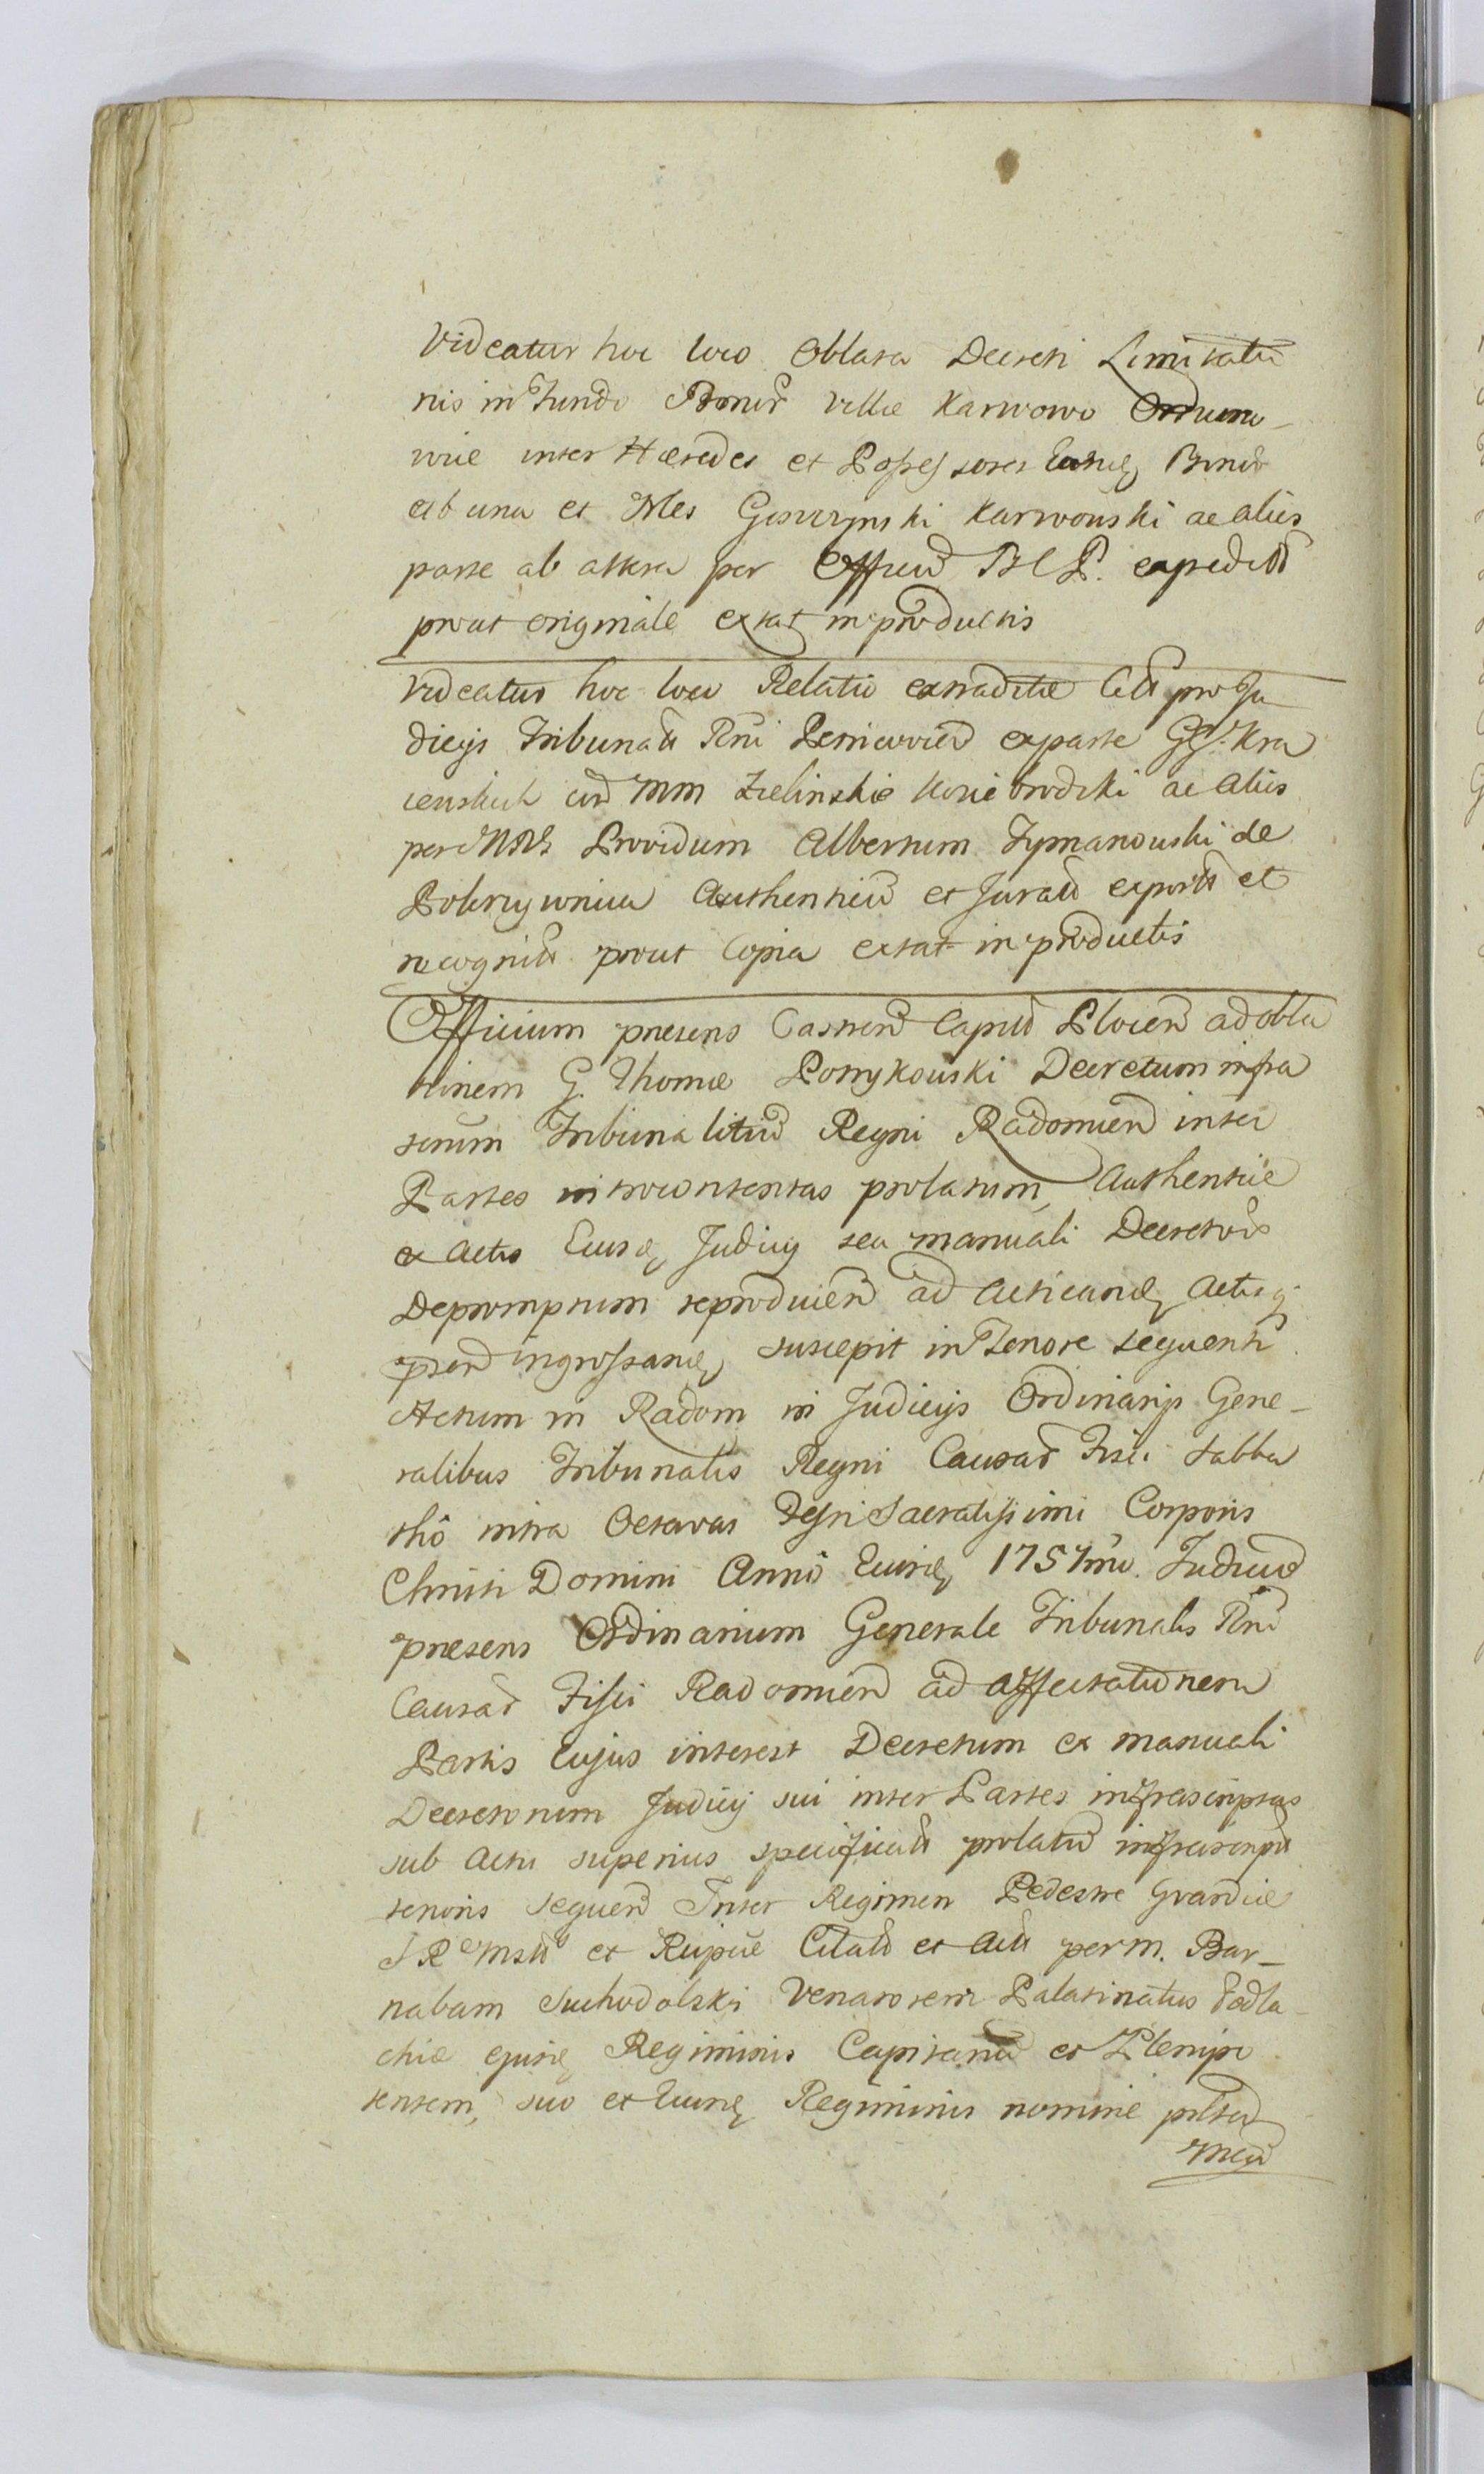 Videatur hoc loco Oblata Decreti Limitatio
nis in Fundo Bonor Villae Karwowo
wie inter Haeredes et Possessores Earundę Bonor
ab una et Mles Goszczynski Karwowski ac aliis
parte ab altera per Officiu expedit
prout originale extat in productis
Videatur hoc loco Relatio extraditae Citt pro Ju
dicijs Tribunali Rni exparte GG. Kra
cum MM Zielinskie ac aliis
per Providum Albertum Szymanowski de
Authenticu et Juratu export et
recognitt prout Copia extat in productis
Officium praesens Castren Capitt Plocen ad obla
tionem G. Thomae Ponykowski Decretum infra
scrum Tribunalitiu Regni Radomien inter
Partes introcontentas prolatum, Authentice
ex Actis Eiusdę Judicij seu manuali Decretor
Depromptum reproducien ad Acticandę Actisq
psen ingrossandę suscepit in Tenore sequenti
Actum in Radom in Judicijs Ordinarijs Gene-
ralibus Tribunalis Regni Causar Fisci Sabba
tho intra Octavas Festi Sacratissimi Corporis
Christi Domini Anno Eiusdę 1757mo. Judiciu
praesens Ordinarium Generale Tribunalis Rni
Causar Fisci Radomien ad affectationem
Partis Cujus interest Decretum ex manuali
Decretorum Judicij sui inter Partes infrascriptas
sub Actu superius specificatt prolatu infrascript
tenoris sequen Inter Regimen Pedestre Gvardiae
S R Mstt et Reipcae Citatt et Att per M. Bar-
nabam Suchodolski Venatorem Palatinatus Podla-
chiae ejusdę Regiminis Capitanu et Plenipo
tentem, suo et Eiusdę Regiminis nomine